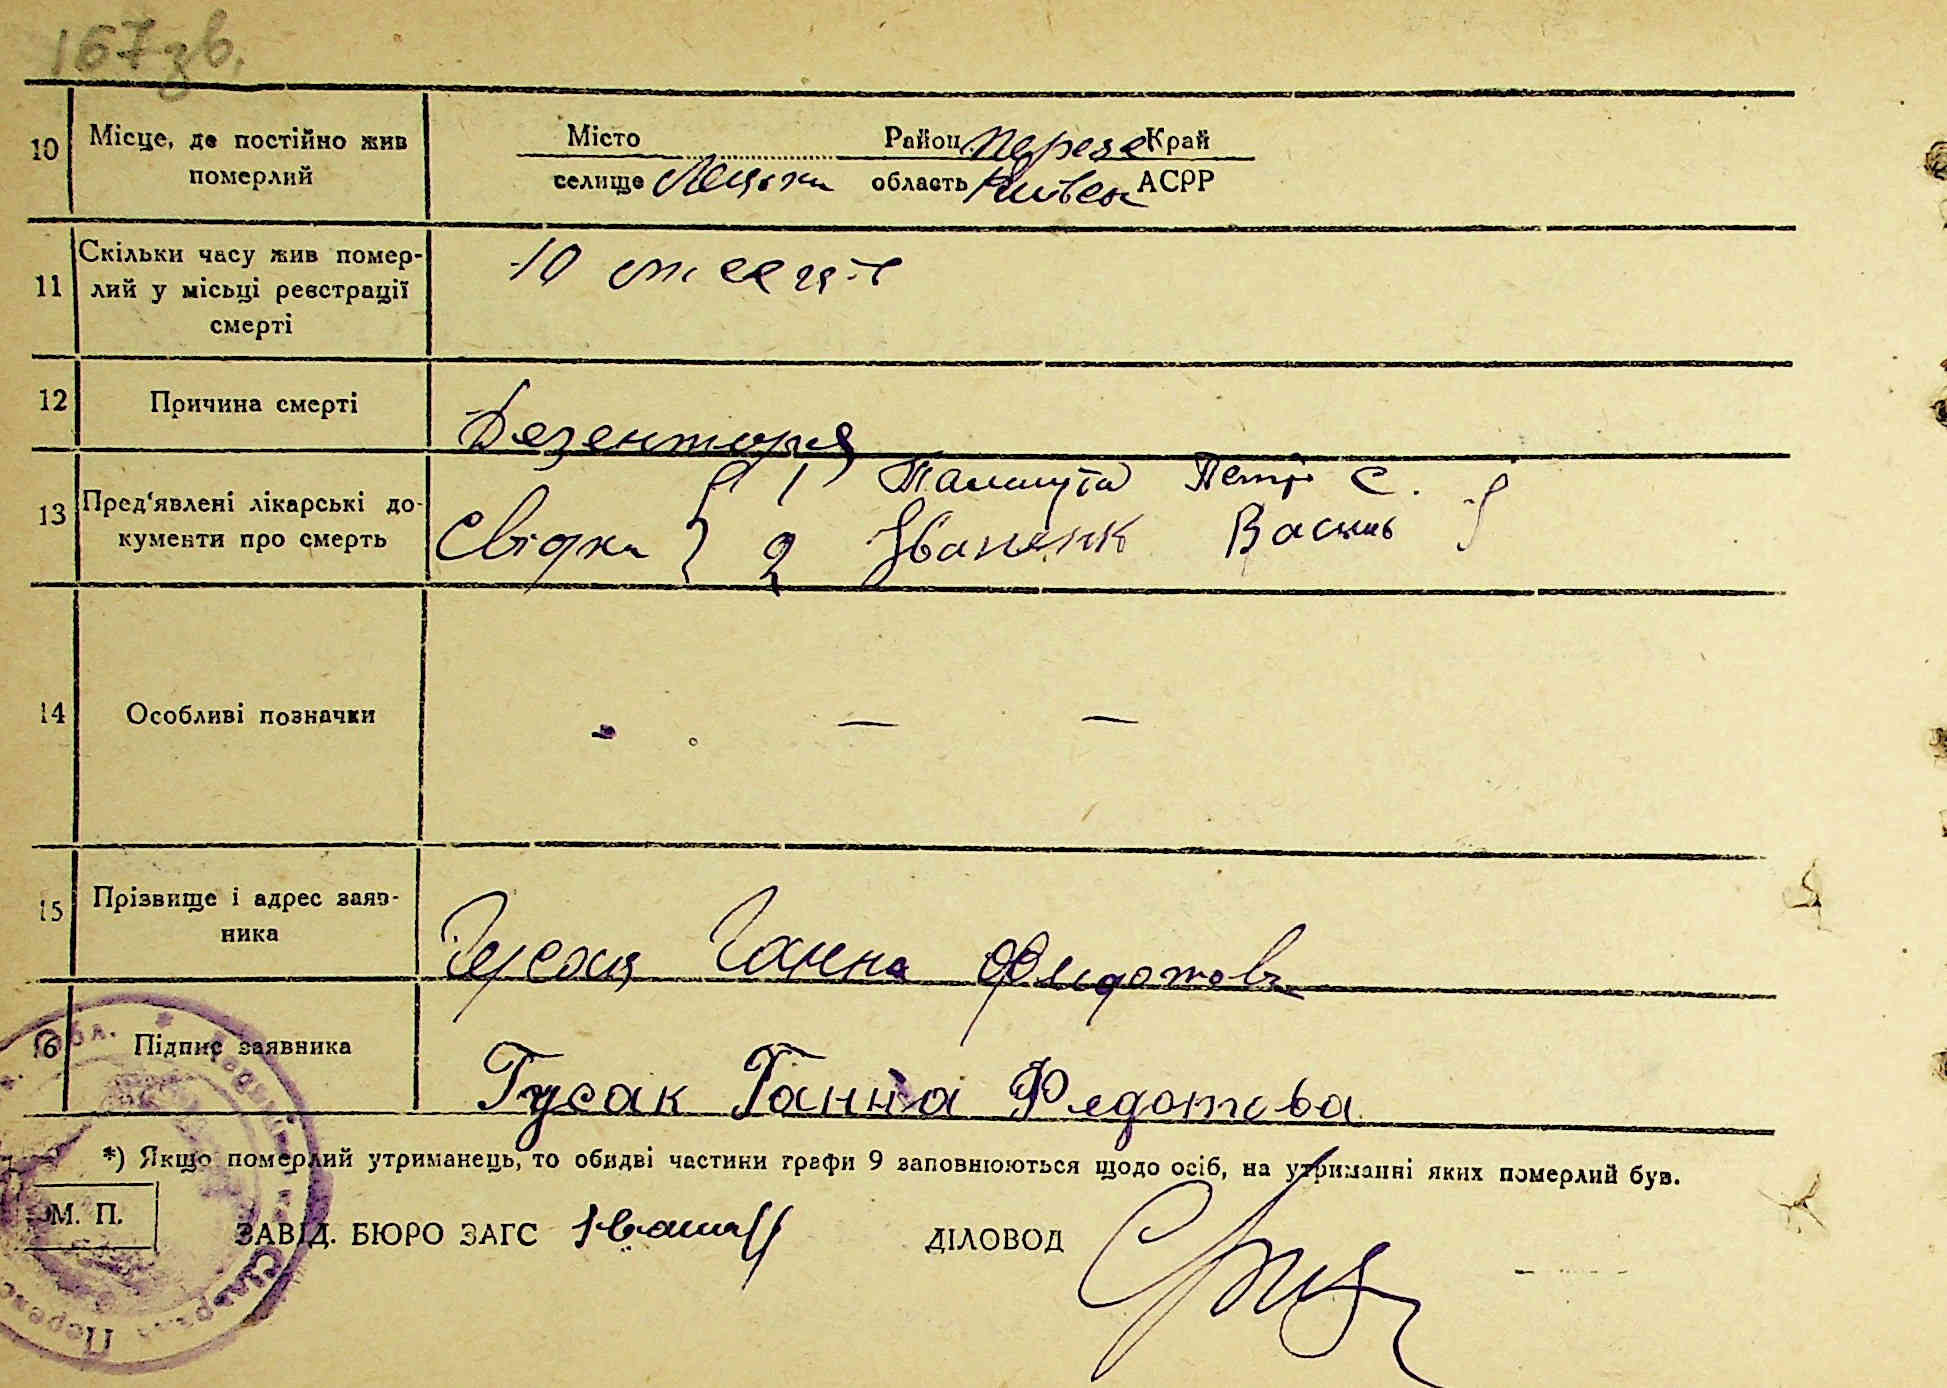 167 зв.
10 Місце, де постійно жив померлий
Місто Район Перея Край
селище область Київск АСРР
11 Скільки часу жив помер-
лий у місьці реєстрації
смерті
10
12 Причина смерті
Дезенторя
13 Пред'явлені лікарські до-
кументи про смерть
1 Петр С.
Свідки 2 Іваненк Василь
14 Особливі позначки
— —
15 Прізвище і адрес заяв-
ника
Гусак Ганна Федотова
16 Підпис заявника
Гусак Ганна Федотова
*) Якщо померлий утриманець, то обидві частини графи 9 заповнюються щодо осіб, на утриманні яких померлий був.
М. П.
ЗАВІД. БЮРО ЗАГС ДІЛОВОД